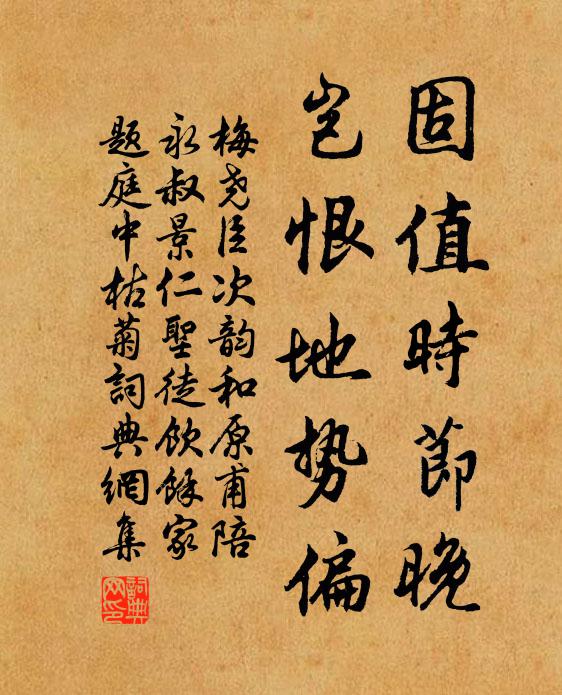 固值時節晚
岂恨地势偏
梅尧臣次韵和原甫陪
永叔景仁聖徒飲餘家
题庭中枯菊詞典網集
詞典
网印